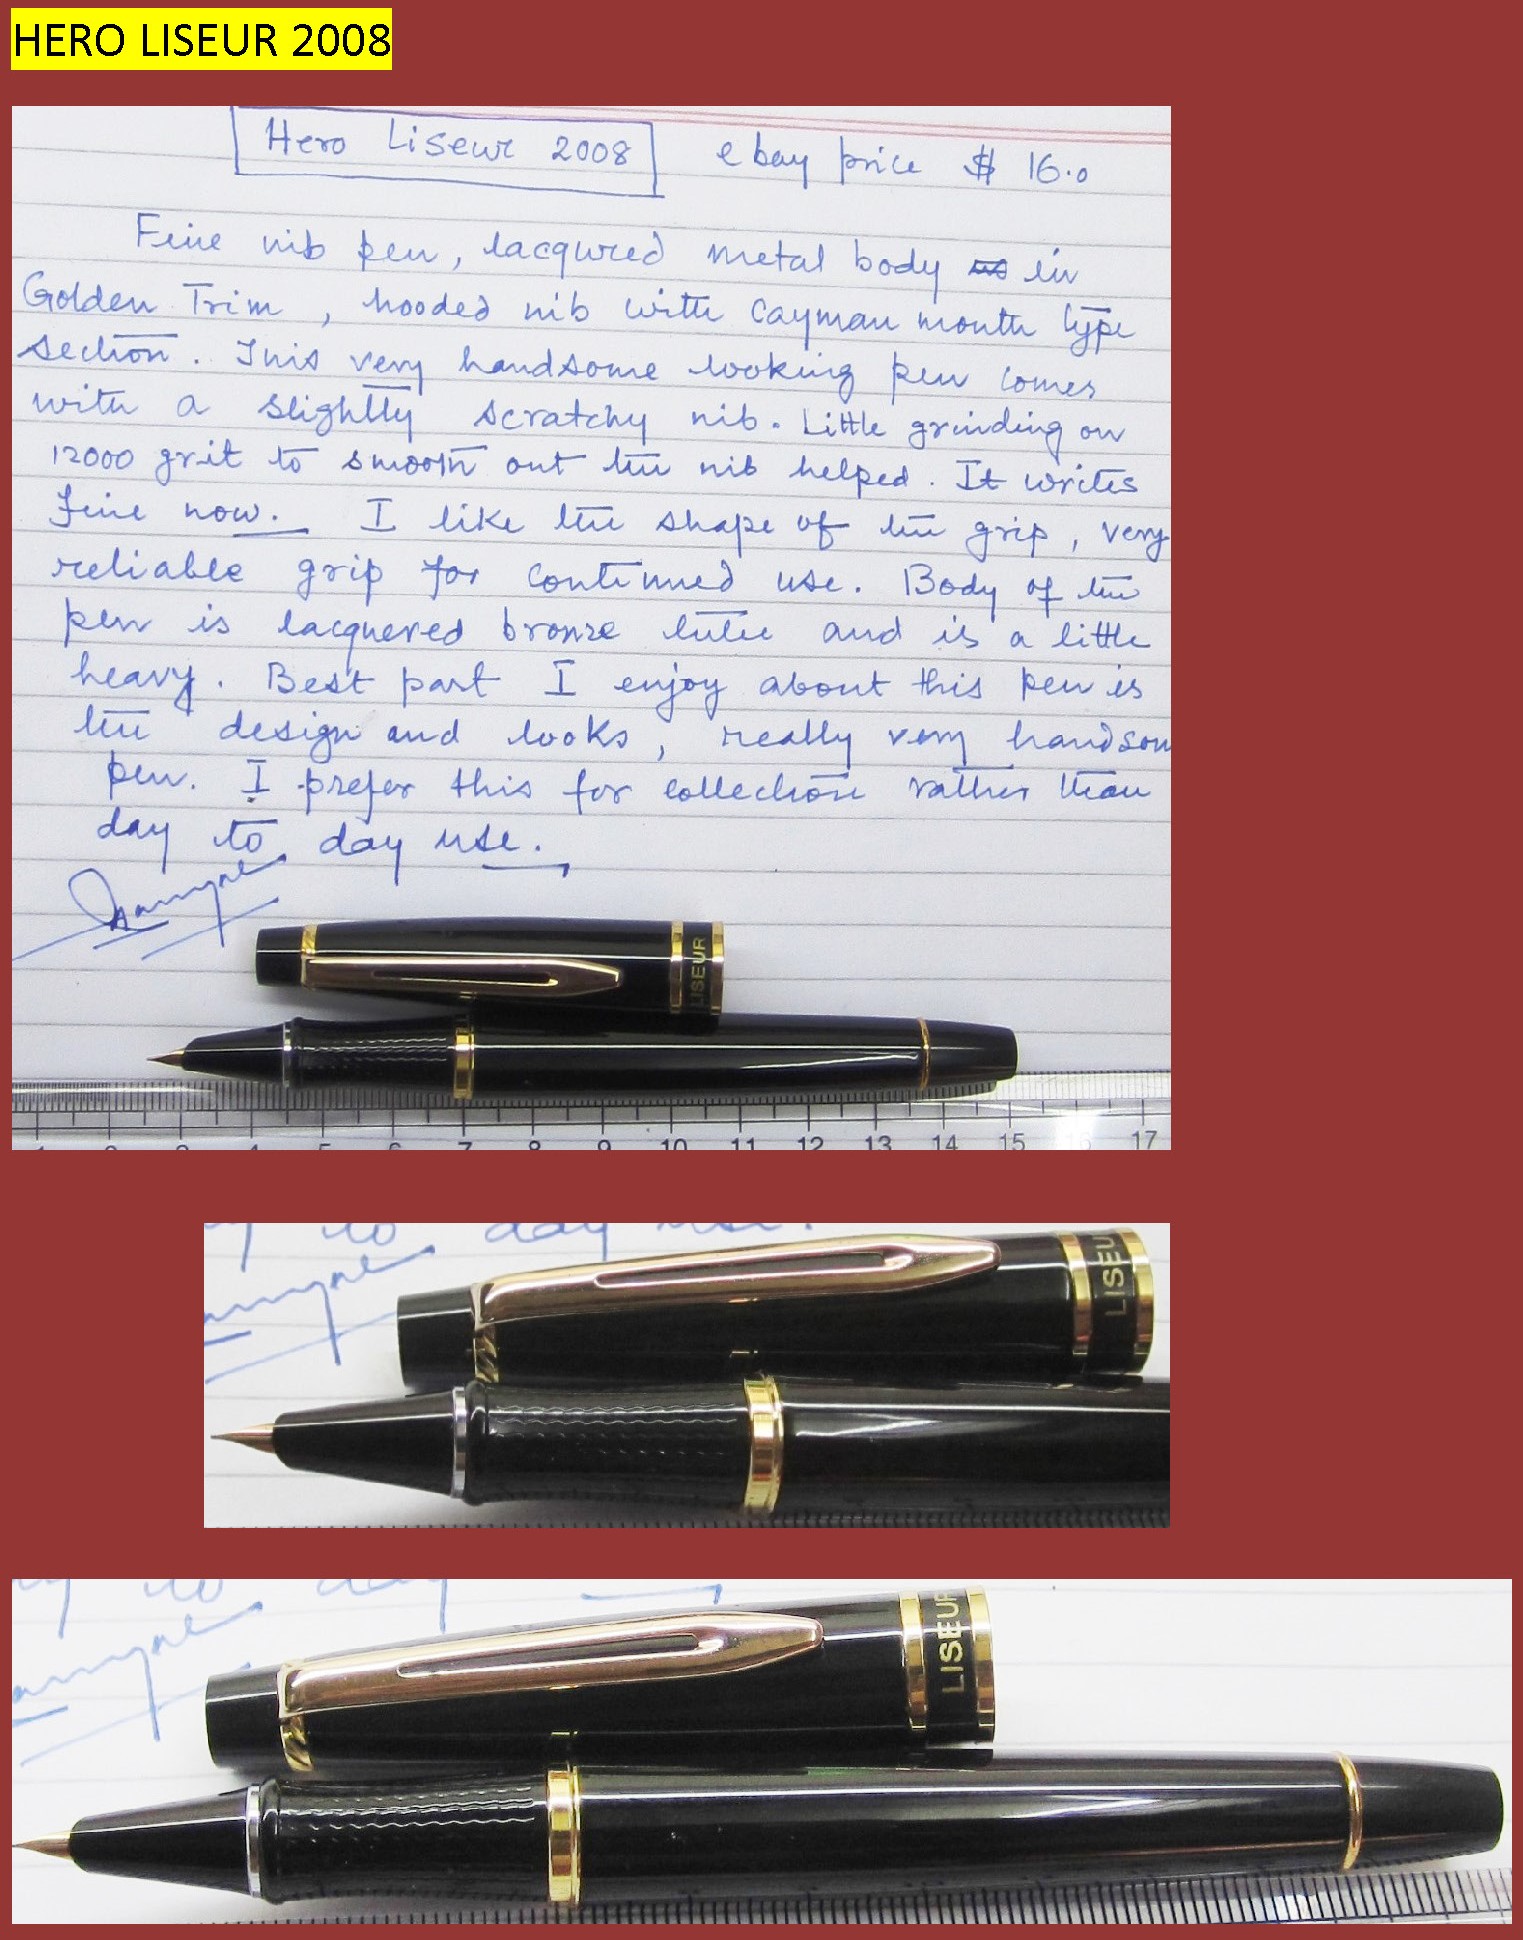 HERO LISEUR 2008
Hero Liseur 2008 ebay price $ 16.0
Fine nib pen, lacqured metal body in
Golden Trim, hooded nib with Cayman mouth type
section. This very handsome looking pen comes
with a slightly scratchy nib. Little grinding on
12000 grit to smooth out the nib helped. It writes
fine now. I like the shape of the grip, very
reliable grip for continued use. Body of the
pen is lacquered bronze tube and is a little
heavy. Best part I enjoy about this pen is
the design and looks, really very handsom
pen. I prefer this for collection rather than
day to day use.
LISEUR
1 2 3 4 5 6 7 8 9 10 11 12 13 14 15 16 17
to day use.
LISEU
to day
LISEUR